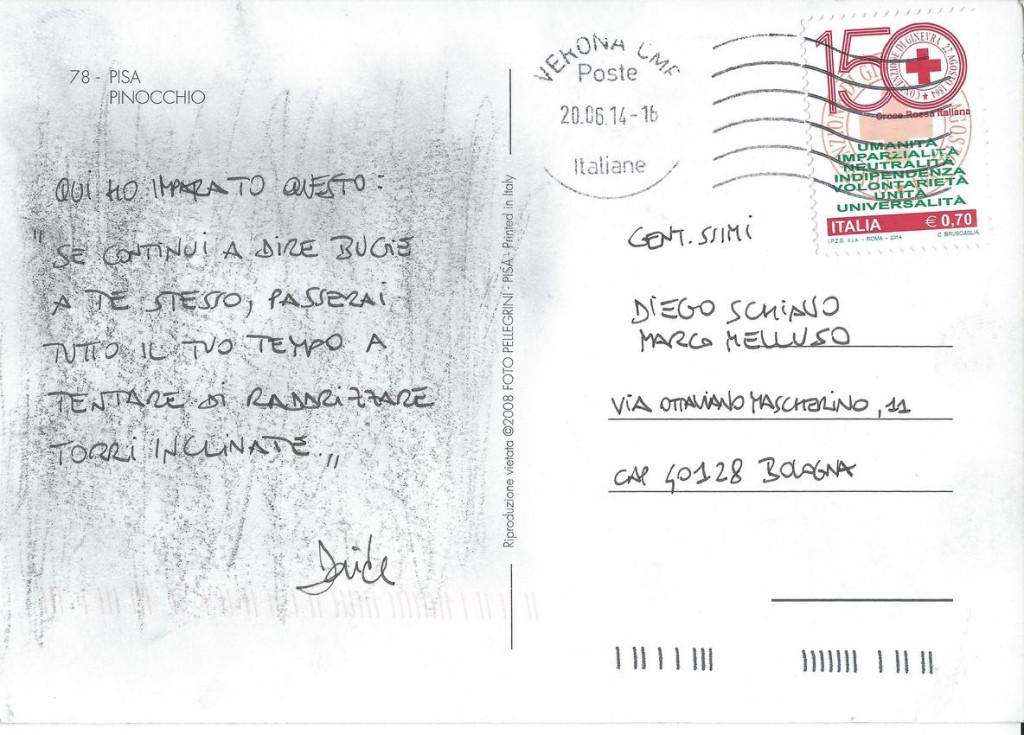 78 - PISA
PINOCCHIO
QUI HO IMPARATO QUESTO:
"SE CONTINUI A DIRE BUGIE
A TE STESSO, PASSERAI
TUTTO IL TUO TEMPO A
TENTARE DI RADDRIZZARE
TORRI INCLINATE."
Davide
Riproduzione vietata ©2008 FOTO PELLEGRINI - PISA - Printed in Italy
VERONA CMP
Poste
20.06.14-16
Italiane
150
CONVENZIONE DI GINEVRA 22 AGOSTO 1864
Croce Rossa Italiana
UMANITÀ
IMPARZIALITÀ
NEUTRALITÀ
INDIPENDENZA
VOLONTARIETÀ
UNITÀ
UNIVERSALITÀ
ITALIA € 0,70
I.P.Z.S. S.p.A. - ROMA - 2014 C. BRUSCAGLIA
GENT.SSIMI
DIEGO SCHIAVO
MARCO MELLUSO
VIA OTTAVIANO MASCHERINO, 11
CAP 40128 BOLOGNA